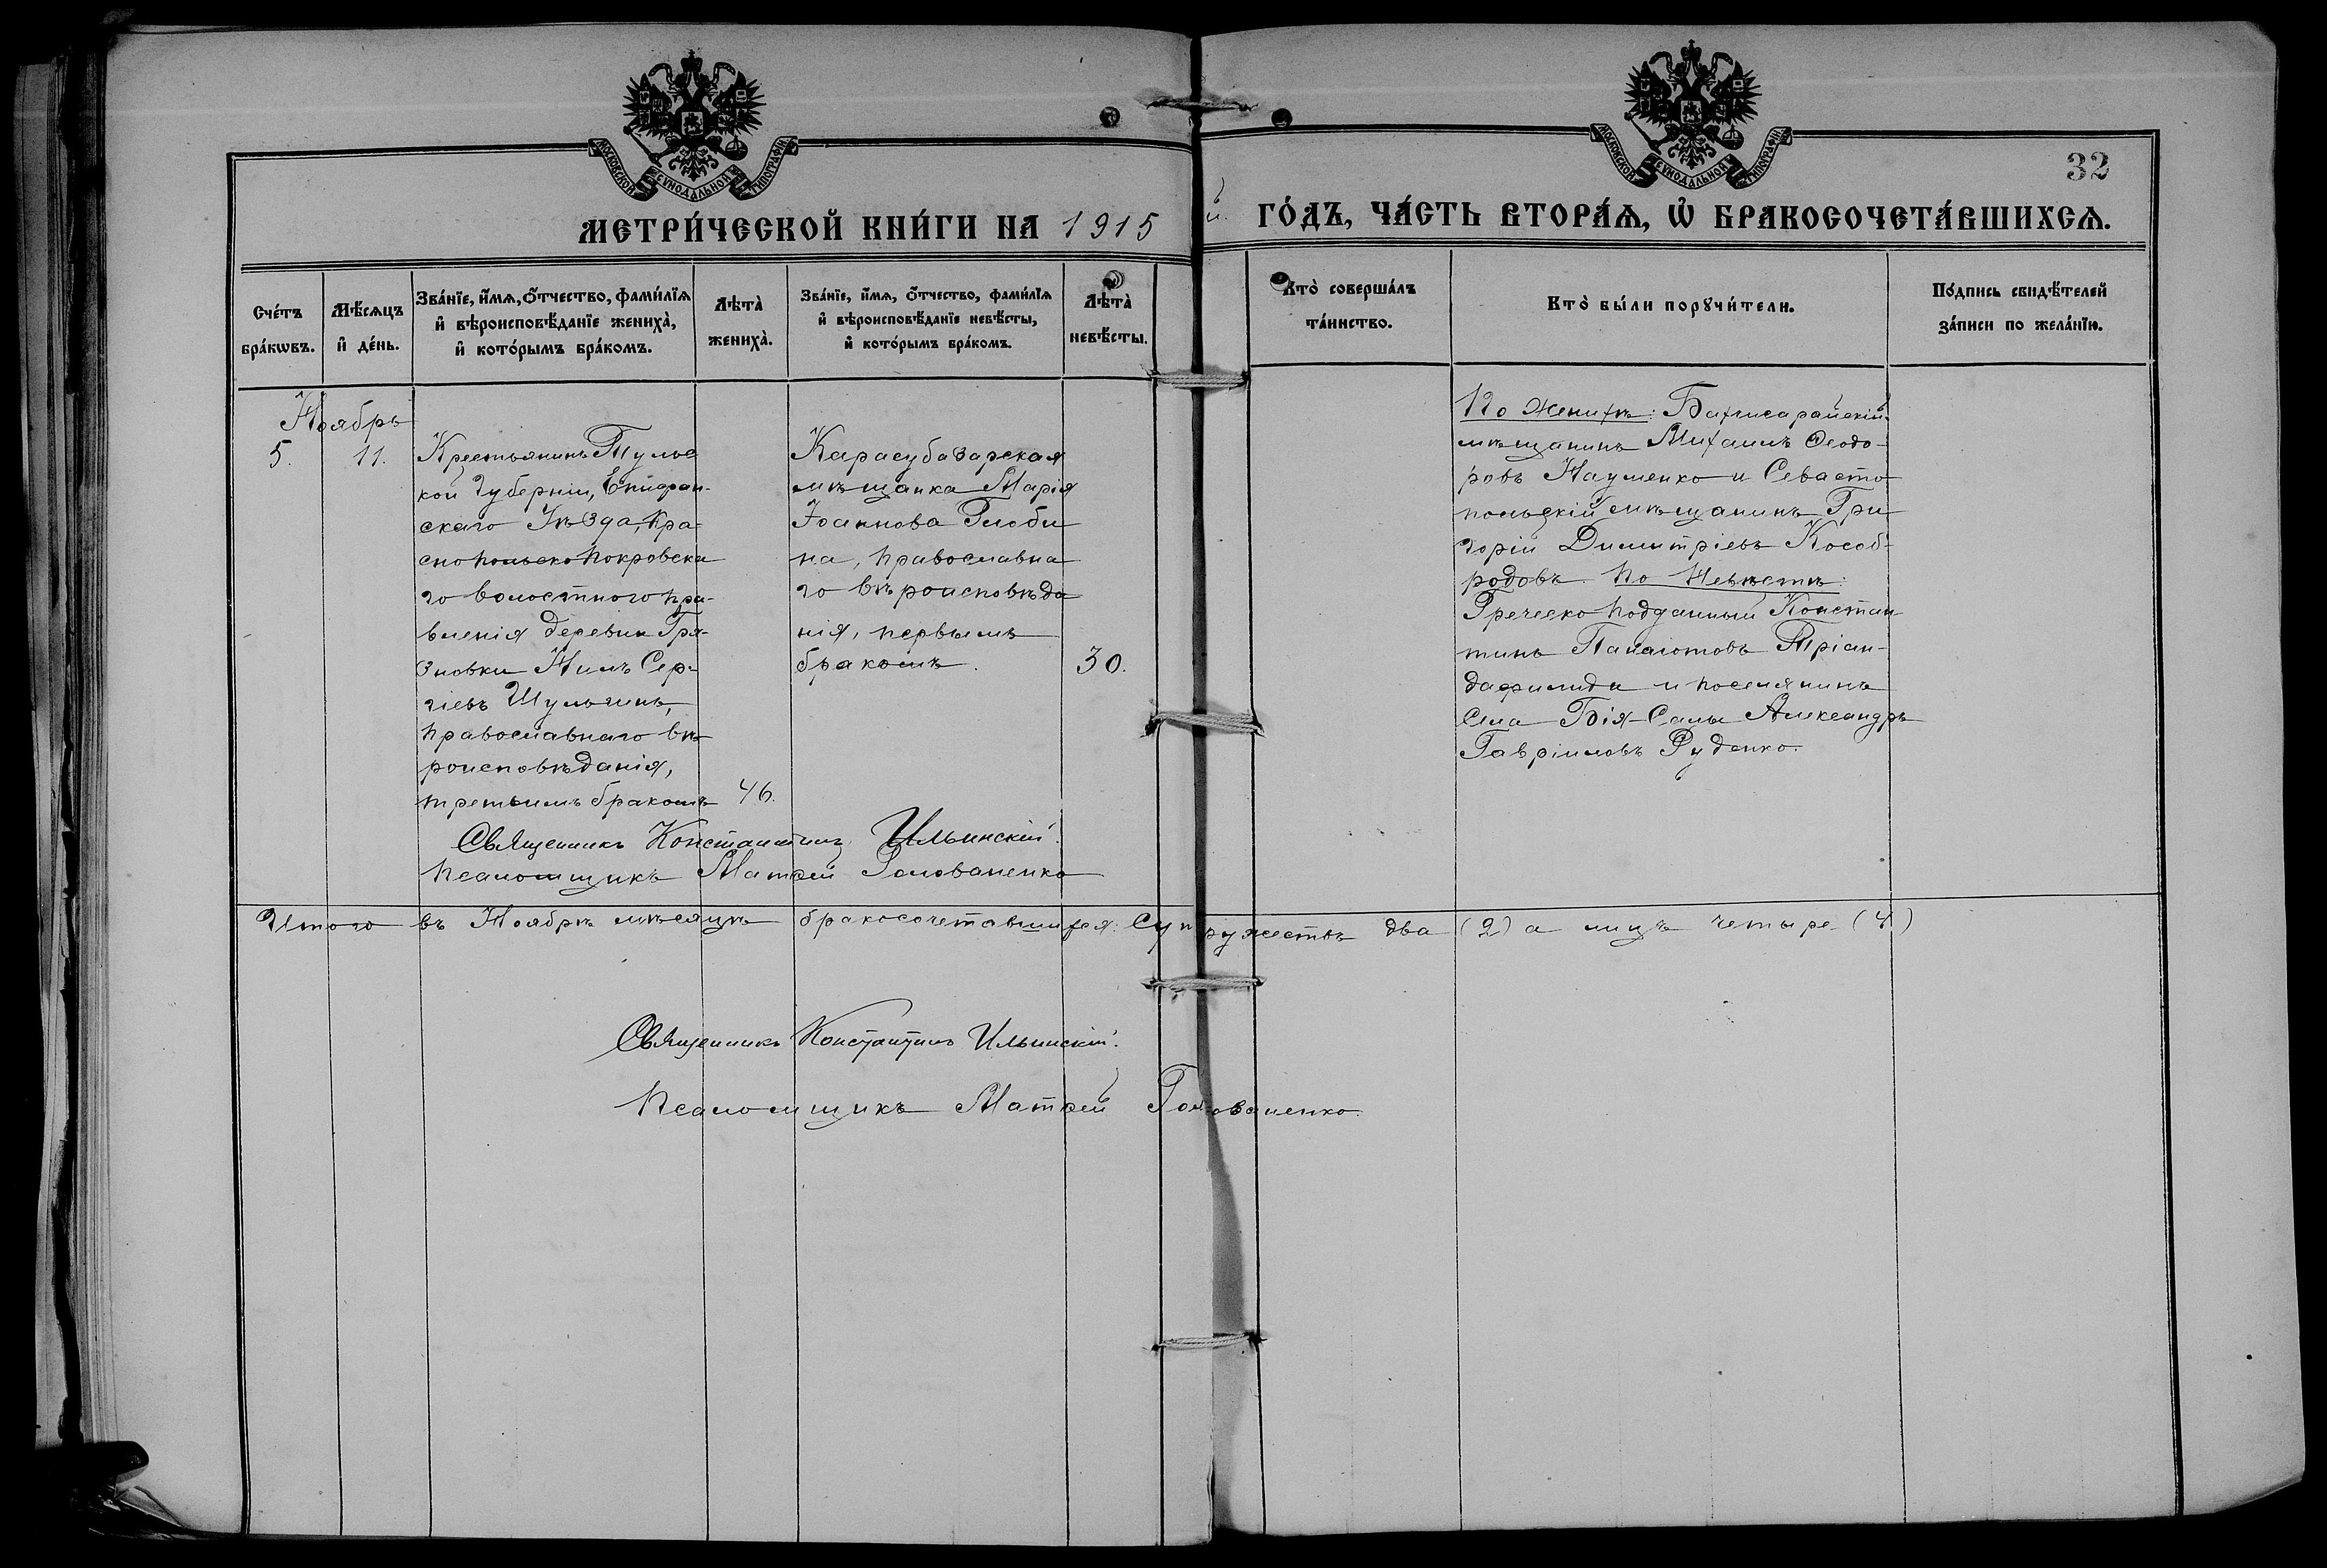 МОСКОВСКОЙ СУНОДАЛЬНОЙ ТИПОГРАФІИ
МОСКОВСКОЙ СУНОДАЛЬНОЙ ТИПОГРАФІИ
32
МЕТРИ́ЧЕСКОЙ КНИ́ГИ НА 1915 й. ГО́ДЪ, ЧА́СТЬ ВТОРА́Ѧ, Ѽ БРАКОСОЧЕТА́ВШИХСѦ.
Сче́тъ
бра́кѡвъ.
Мѣ́сѧцъ
и҆ де́нь.
Зва́нїе, и҆́мѧ, ѻ҆́тчество, фами́лїѧ
и҆ вѣроисповѣ́данїе жениха̀,
и҆ кото́рымъ бра́комъ.
Лѣта̀
жениха̀.
Зва́нїе, и҆́мѧ, ѻ҆́тчество, фами́лїѧ
и҆ вѣроисповѣ́данїе невѣ́сты,
и҆ кото́рымъ бра́комъ.
Лѣта̀
невѣ́сты.
Кто̀ соверша́лъ
та́инство.
Кто̀ бы́ли порꙋчи́тели.
По́дпись свидѣ́телей
за́писи по жела́нїю.
Ноябрь
5. 11.
Крестьянинъ Тульс
кой Губерніи, Епифан-
скаго Уѣзда, Кра-
снопольскопокровска
го волостного пра-
вленія деревни Гря-
зновки Нилъ Сер-
гіевъ Шульгинъ,
православнаго вѣ
роисповѣданія,
третьимъ бракомъ 46.
Карасубазарская
мѣщанка Марія
Іоаннова Глоби
на, православна
го вѣроисповѣда
нія, первымъ
бракомъ. 30.
По женихѣ: Бахчисарайскій
мѣщанинъ Михаилъ Ѳеодо-
ровъ Науменко и Севасто
польскій мѣщанинъ Гри
горій Димитріевъ Кособ-
родовъ. По Невѣстѣ:
Греческо подданный Констан
тинъ Панаіотовъ Тріан-
дафилиди и поселянинъ
Села Бія-Сала Александръ
Гавріиловъ Руденко.
Священникъ Константинъ Ильинскій.
Псаломщикъ Матѳей Голованенко
Итого въ Ноябрѣ мѣсяцѣ бракосочетавшихся: Супружествъ два (2) а лицъ четыре (4)
Священникъ Константинъ Ильинскій.
Псаломщикъ Матѳей Голованенко.